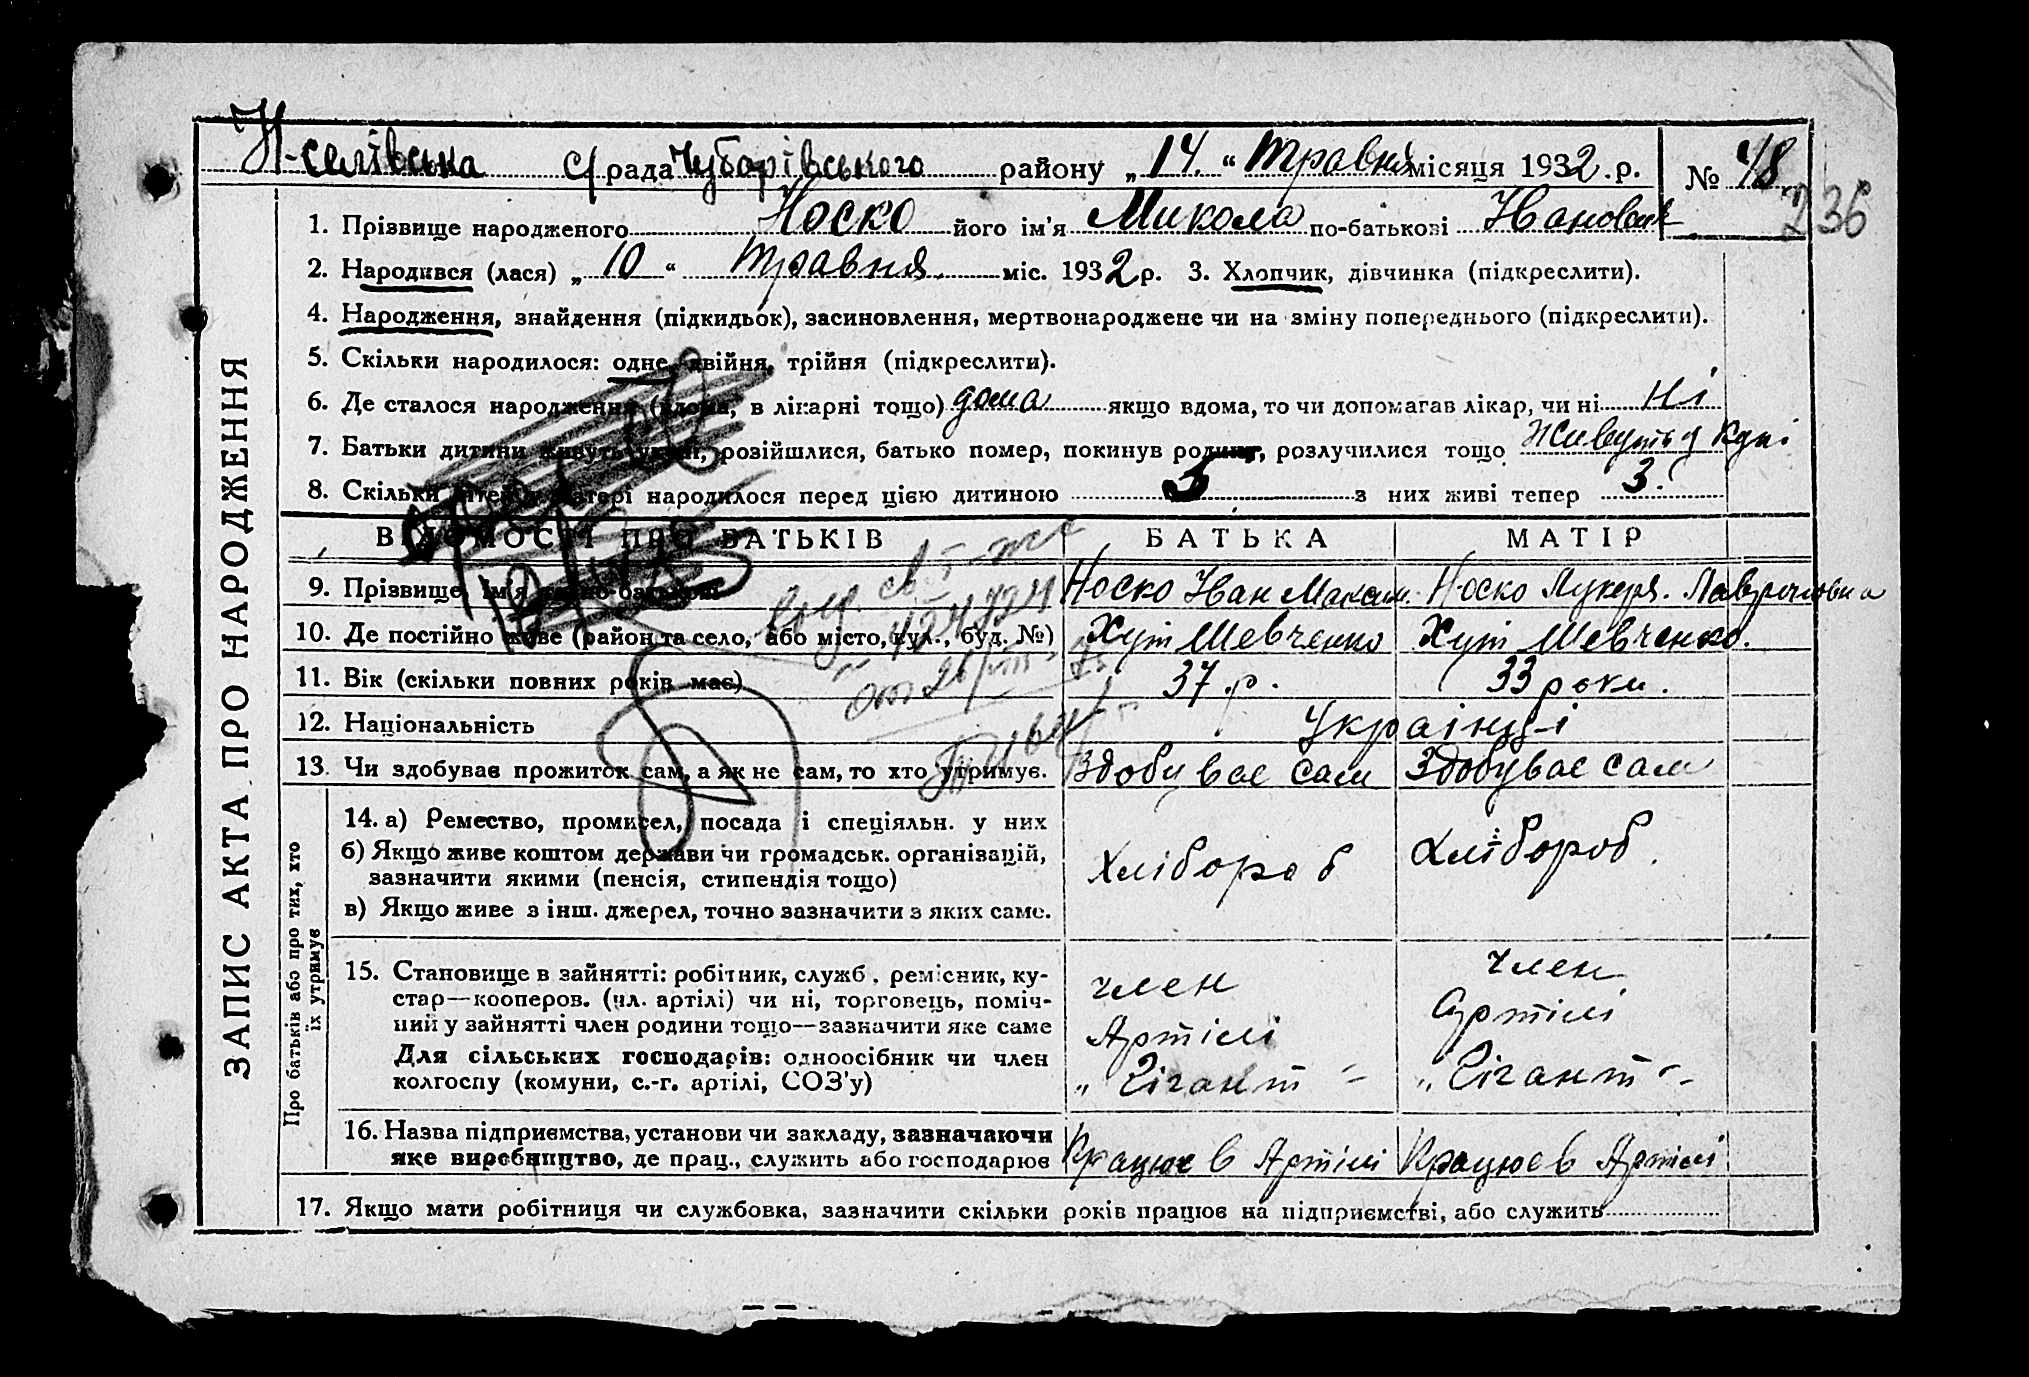 Н-селівська с/рада Чубарівського району „ 14. “ Травня місяця 1932 р. № 48
236
1. Прізвище народженого Носко його ім'я Микола по-батькові
2. Народився (лася) „ 10 “ травня. міс. 1932 р. 3. Хлопчик, дівчинка (підкреслити).
4. Народження, знайдення (підкидьок), засиновлення, мертвонароджене чи на зміну попереднього (підкреслити).
5. Скільки народилося: одне, двійня, трійня (підкреслити).
6. Де сталося народження (вдома, в лікарні тощо) дома якщо вдома, то чи допомагав лікар, чи ні ні
7. Батьки дитини живуть укупі, розійшлися, батько помер, покинув родину, розлучилися тощо Живуть у купі
8. Скільки дітей у матері народилося перед цією дитиною з них живі тепер 3.
ВІДОМОСТІ ПРО БАТЬКІВ БАТЬКА МАТІР
9. Прізвище, ім'я по-батькові Носко Іван Максим. Носко Лукеря.
10. Де постійно живе (район та село, або місто, вул., буд. №) Хут Шевченко Хут Шевченко.
11. Вік (скільки повних років має) 37 р. 33 роки.
12. Національність Українці
13. Чи здобуває прожиток сам, а як не сам, то хто утримує. Здобуває сам Здобуває сам
14. а) Ремество, промисел, посада і спеціяльн. у них
б) Якщо живе коштом держави чи громадськ. організацій,
зазначити якими (пенсія, стипендія тощо)
в) Якщо живе з інш. джерел, точно зазначити з яких саме.
Хлібороб Хлібороб.
15. Становище в зайнятті: робітник, служб., ремісник, ку-
стар—кооперов. (чл. артілі) чи ні, торговець, поміч-
ний у зайнятті член родини тощо—зазначити яке саме
Для сільських господарів: одноосібник чи член
колгоспу (комуни, с.-г. артілі, СОЗ'у)
член
Артілі
„ Гігант “
член
Артілі
„ Гігант “
16. Назва підприємства, установи чи закладу, зазначаючи
яке виробництво, де прац., служить або господарює
Працює в Артілі Працює в Артілі
17. Якщо мати робітниця чи службовка, зазначити скільки років працює на підприємстві, або служить
ЗАПИС АКТА ПРО НАРОДЖЕННЯ
Про батьків або про тих, хто
їх утримує